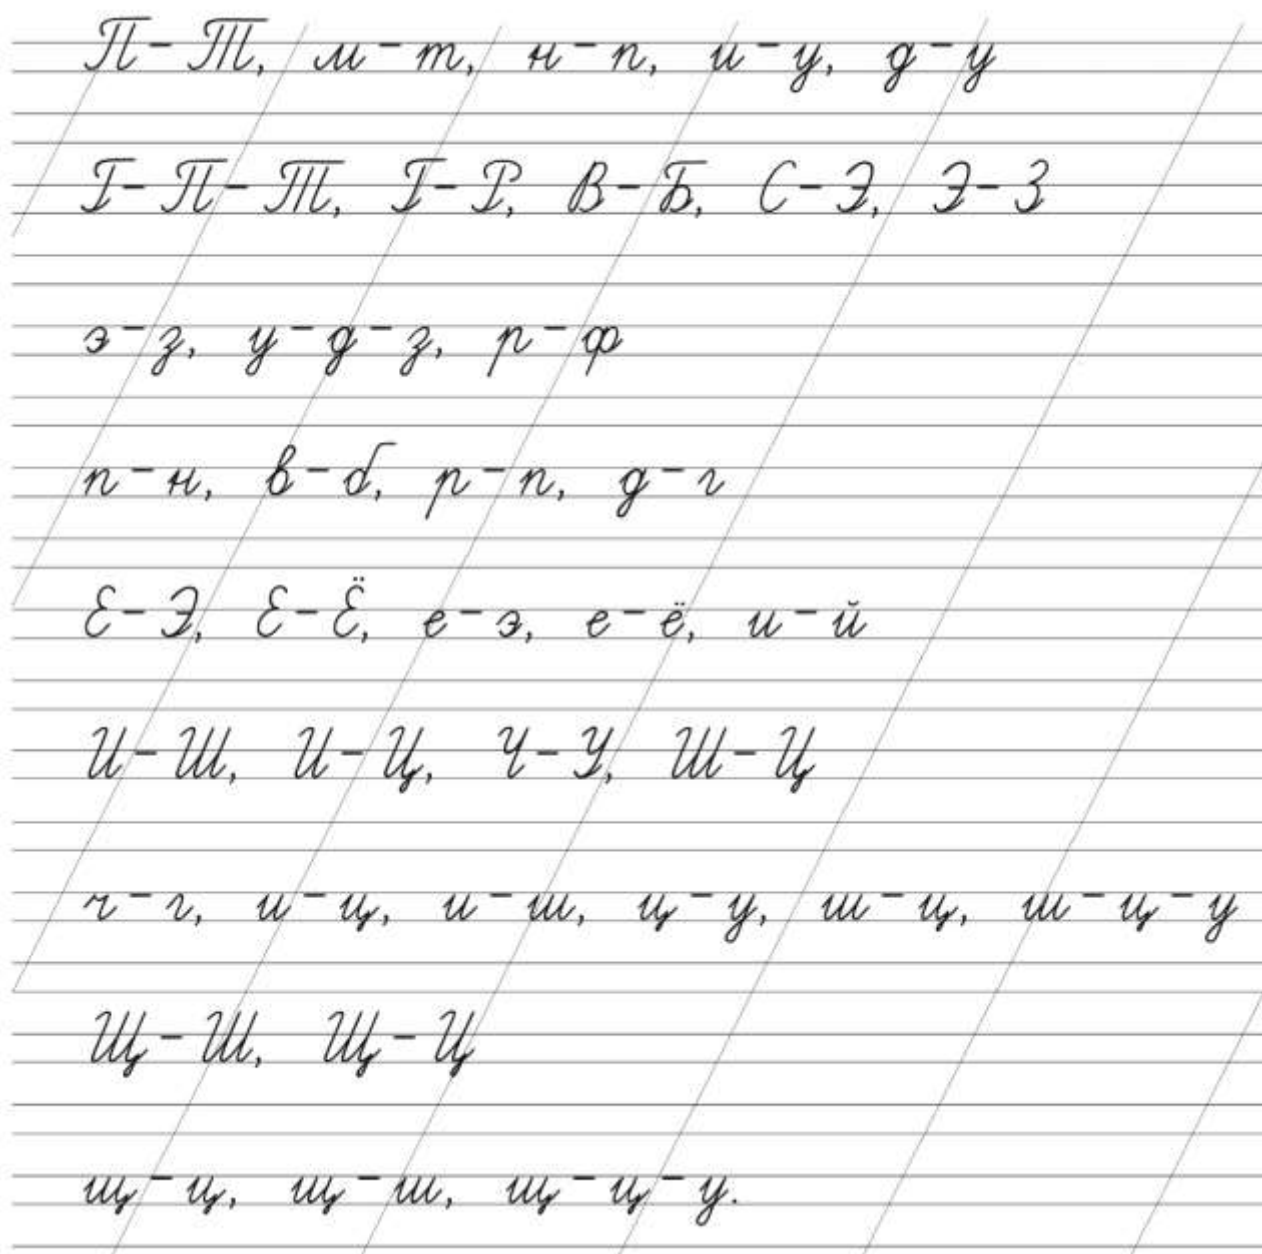 П – Т, м – т, н – п, и – у, д – у
Г – П – Т, Г – Р, В – Б, С – Э, Э – З
э – з, у – д – з, р – ф
п – н, в – б, р – п, д – г
Е – Э, Е – Ё, е – э, е – ё, и – й
И – Ш, И – Ц, Ч – У, Ш – Ц
ч – г, и – ц, и – ш, ц – у, ш – ц, ш – ц – у
Щ – Ш, Щ – Ц
щ – ц, щ – ш, щ – ц – у.